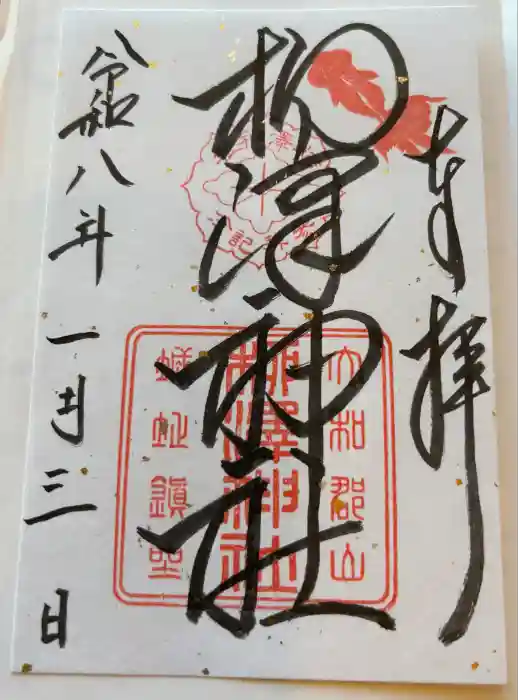 奉拝
柳澤神社
大和郡山
柳澤神社
城址鎮坐
令和八年一月三日